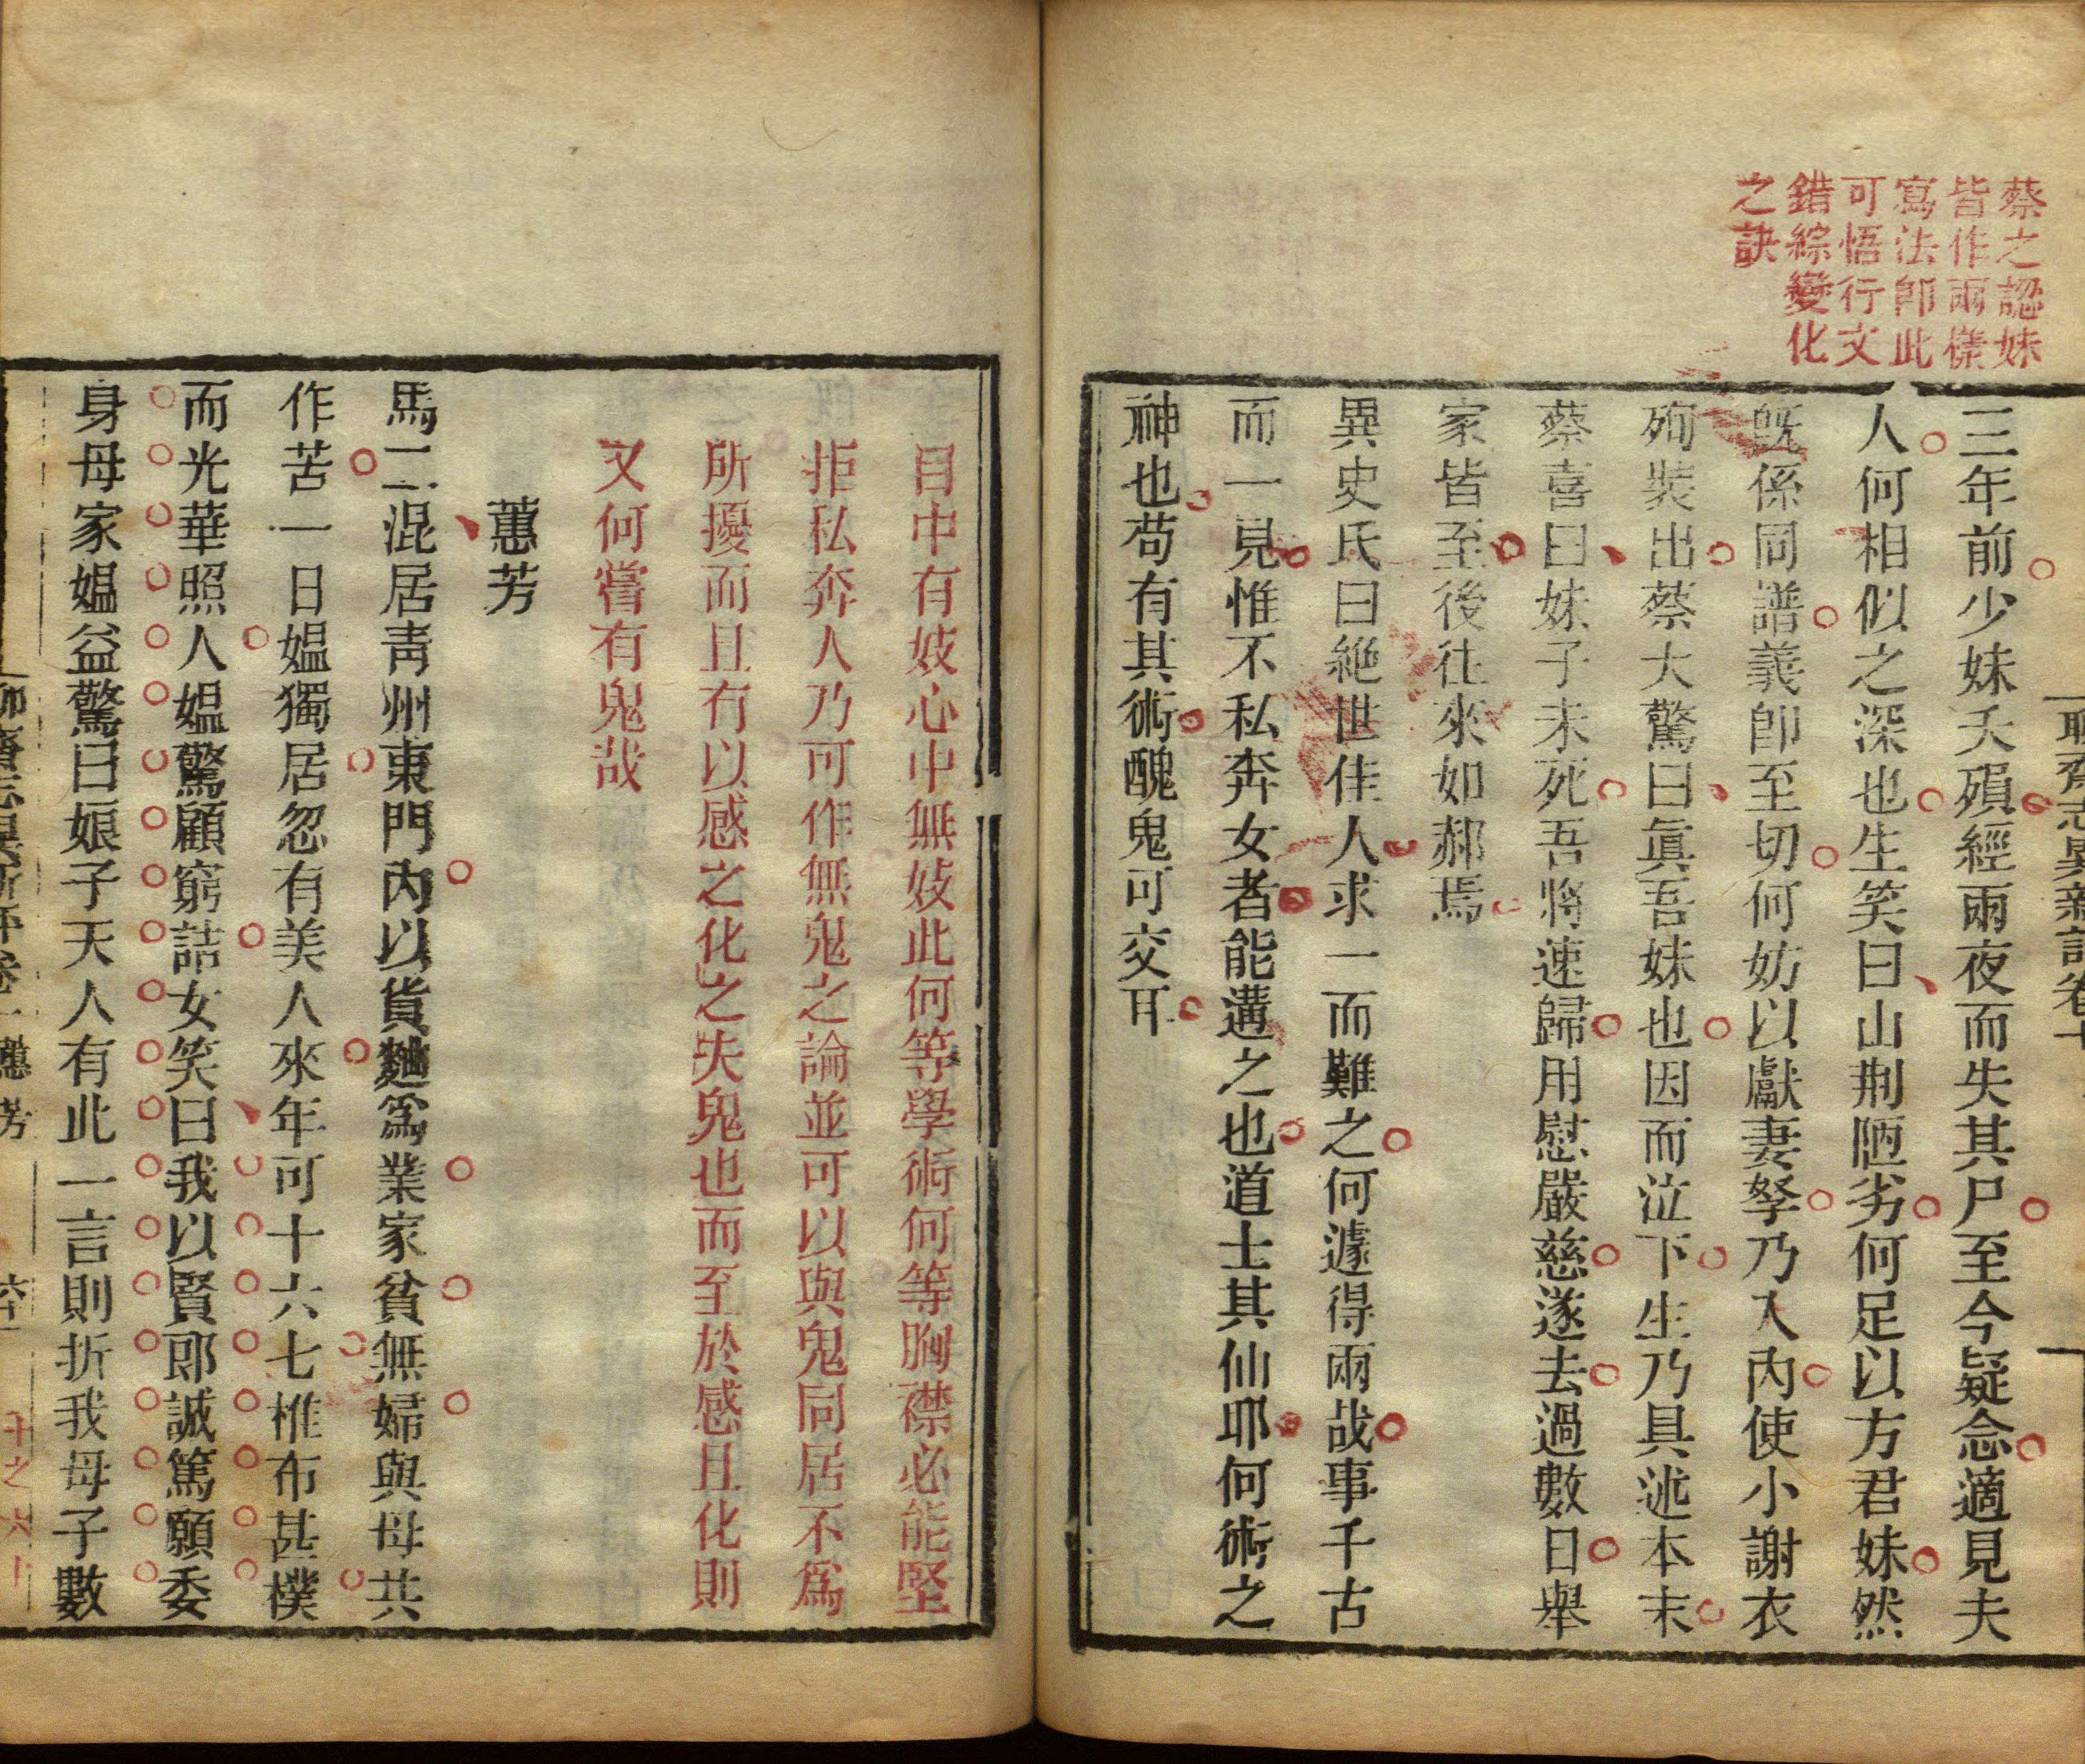 聊齋志異新評卷十
蔡之認妹
皆作兩樣
寫法卽此
可悟行文
錯綜變化
之訣
三年前少妹夭殞經兩夜而失其尸至今疑念適見夫
人何相似之深也生笑曰山荆陋劣何足以方君妹然
旣係同譜義卽至切何妨以獻妻孥乃入內使小謝衣
殉裝出蔡大驚曰眞吾妹也因而泣下生乃具述本末
蔡喜曰妹子未死吾將速歸用慰嚴慈遂去過數日舉
家皆至後往來如郝焉
異史氏曰絶世佳人求一而難之何遽得兩哉事千古
而一見惟不私奔女者能遘之也道士其仙耶何術之
神也苟有其術醜鬼可交耳
目中有妓心中無妓此何等學術何等胸襟必能堅
拒私奔人乃可作無鬼之論並可以與鬼同居不爲
所擾而且有以感之化之夫鬼也而至於感且化則
又何嘗有鬼哉
蕙芳
馬二混居靑州東門內以貨麵爲業家貧無婦與母共
作苦一日媼獨居忽有美人來年可十六七椎布甚樸
而光華照人媼驚顧窮詰女笑曰我以賢郎誠篤願委
身母家媼益驚曰娘子天人有此一言則折我母子數
聊齋志異新評卷十 蕙芳
十之六十